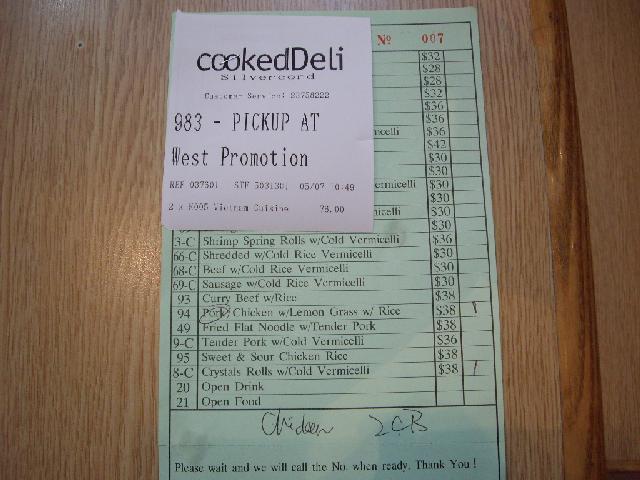 № 007
cookedDeli
Silvercord
Customer Service: 23758222
983 - PICKUP AT
West Promotion
REF 037601 STF 5031301 05/07 0:49
2 x K005 Vietnam Cuisine 76.00
$32
$28
$28
$32
$36
$36
micelli $36
$42
$30
$30
ermicelli $30
$30
rmicelli $30
$30
3-C Shrimp Spring Rolls w/Cold Vermicelli $36
66-C Shredded w/Cold Rice Vermicelli $30
68-C Beef w/Cold Rice Vermicelli $30
69-C Sausage w/Cold Rice Vermicelli $30
93 Curry Beef w/Rice $38
94 Pork/Chicken w/Lemon Grass w/ Rice $38 1
49 Fried Flat Noodle w/Tender Pork $38
9-C Tender Pork w/Cold Vermicelli $36
95 Sweet & Sour Chicken Rice $38
8-C Crystals Rolls w/Cold Vermicelli $38 1
20 Open Drink
21 Open Food
Chicken
Please wait and we will call the No. when ready. Thank You !